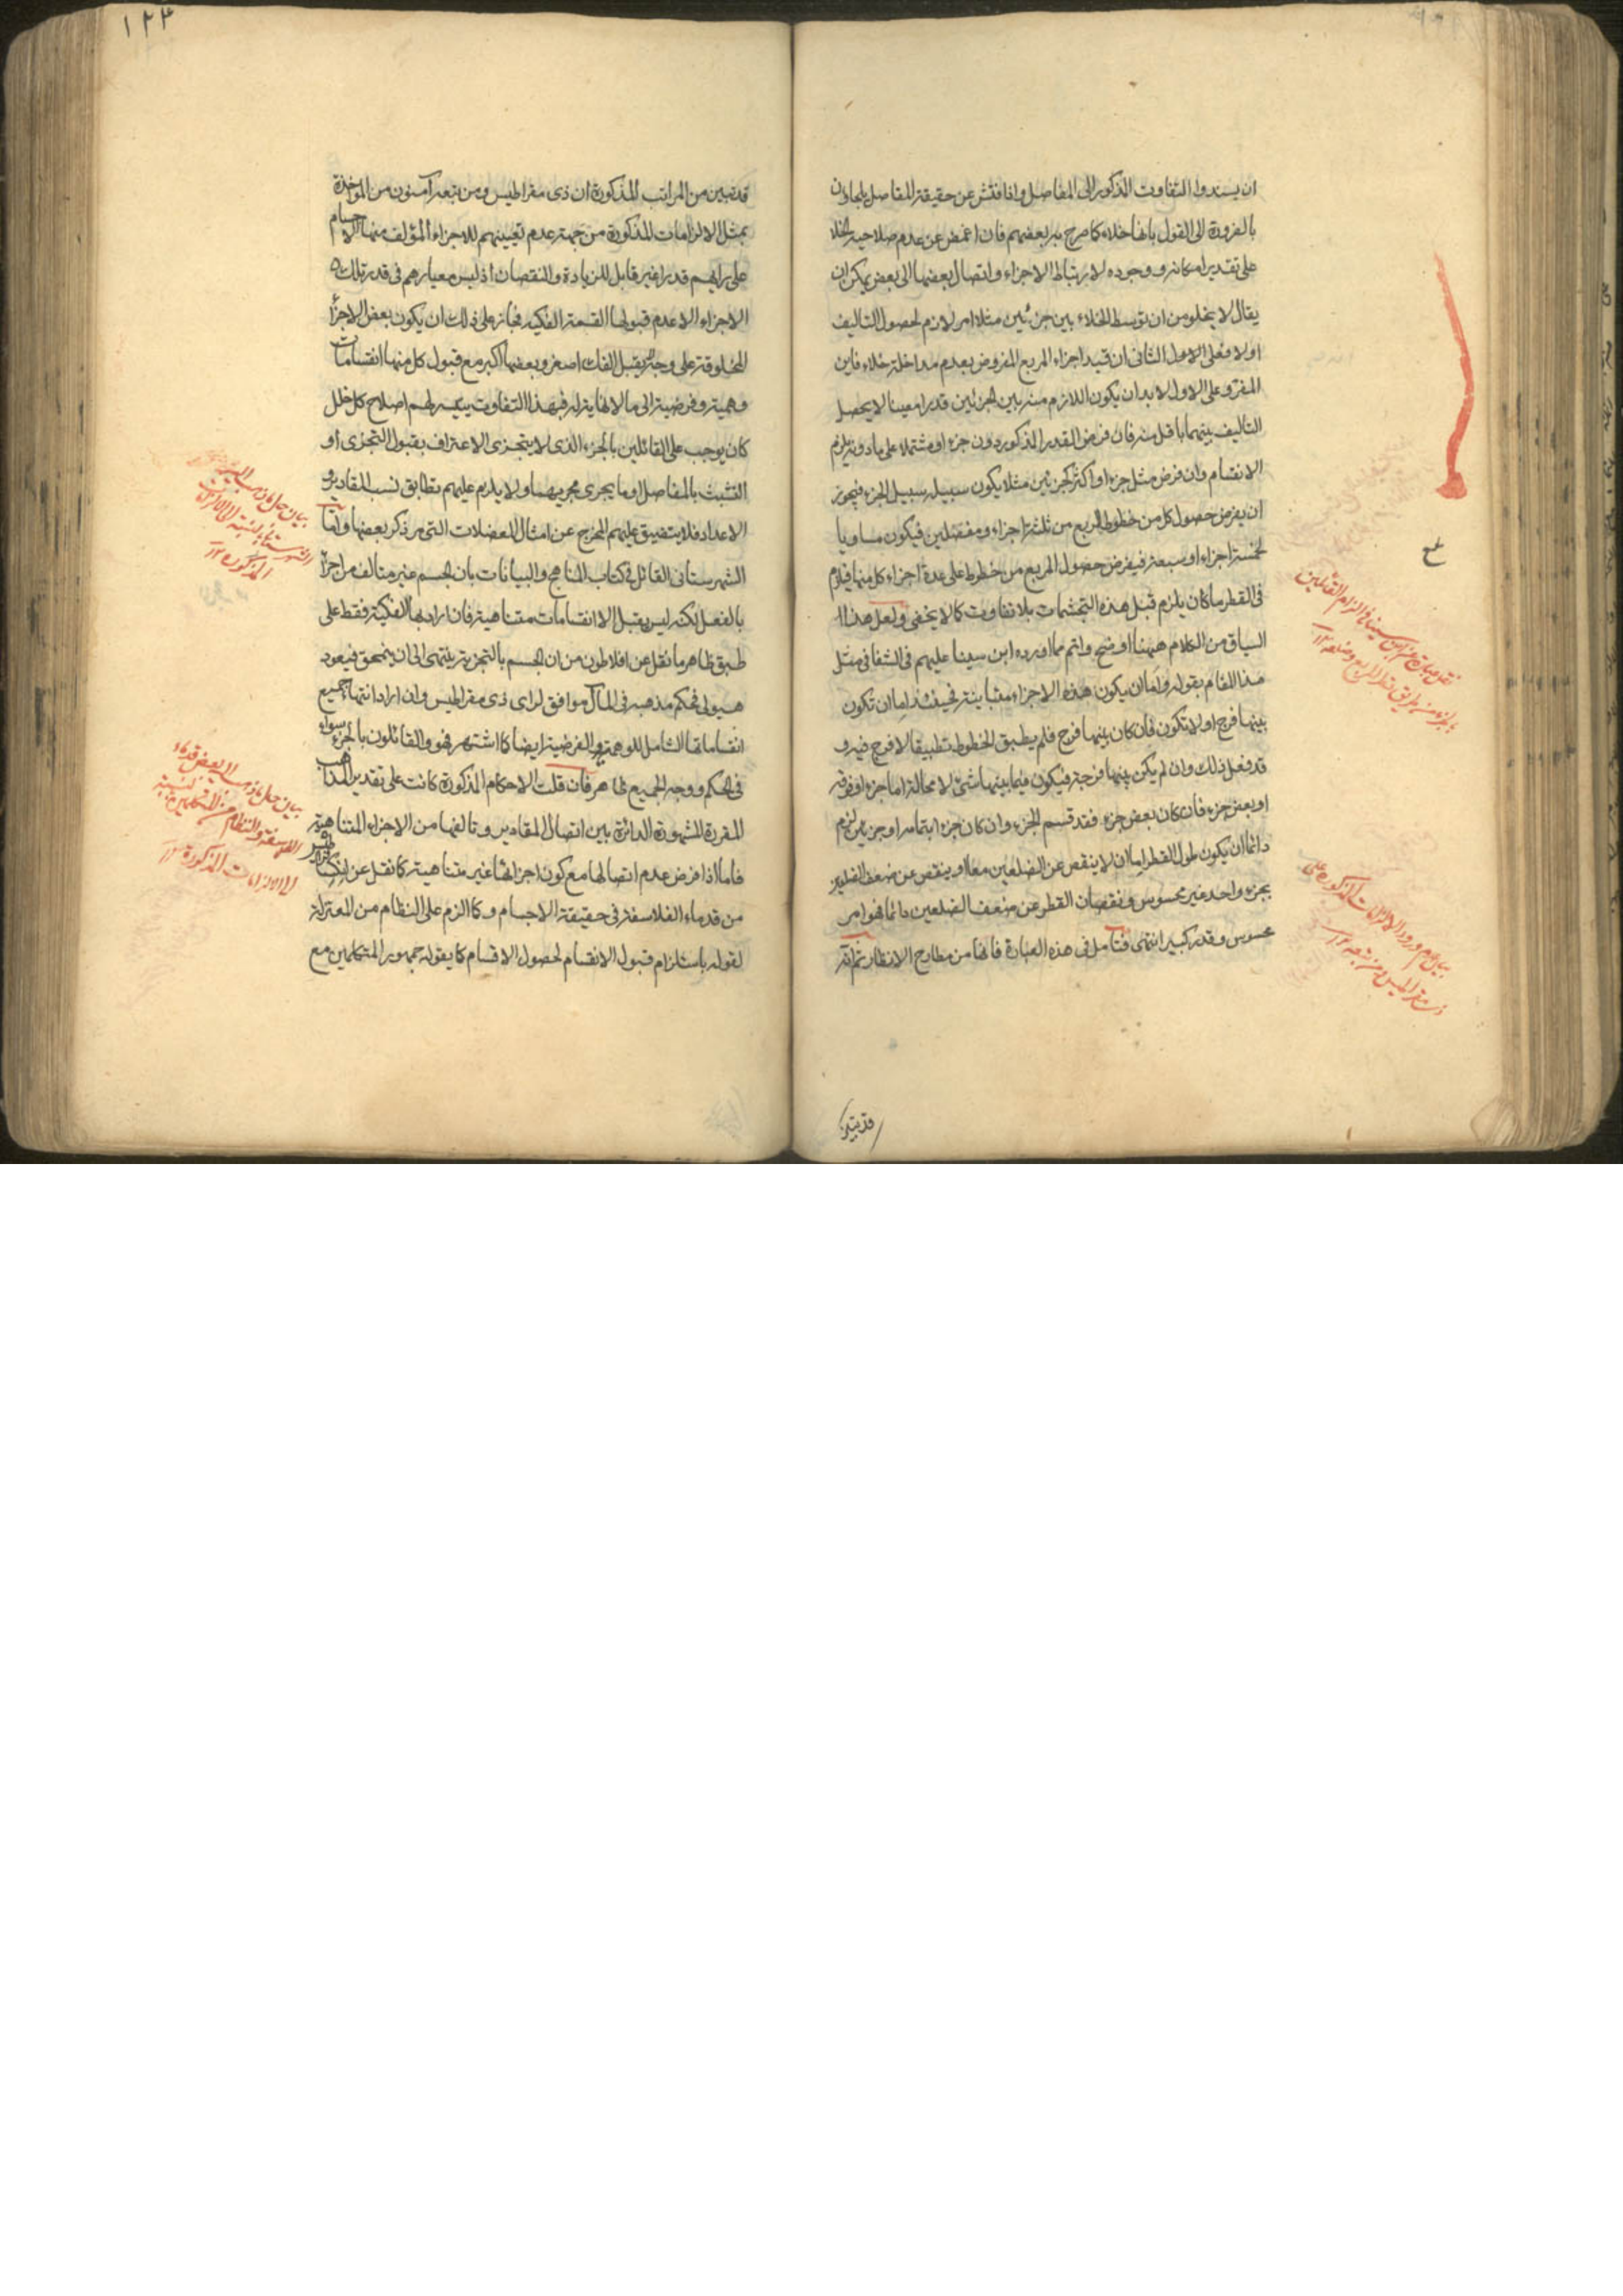 ان يسندوا التفاوت المذكور الى المفاصل واذا فتش عن حقيقة المفاصل يلجاون
بالضرورة الى القول بانها خلاء كما صرح به بعضهم فان اغمض عن عدم صلاحية الخلا
على تقدير امكانه ووجوده لارتباط الاجزاء واتصال بعضها الى بعض يمكن ان
يقال لا يخلو من ان توسط الخلاء بين جزئين مثلا امر لازم لحصول التاليف
اولا فعلى الاول الثانى ان قيد اجزاء المربع المفروض بعدم مداخلة خلاء فاين
المفر وعلى الاول لابد ان يكون اللازم منه بين الجزئين قدرا معينا لا يحصل
التاليف بينهما باقل منه فان فرض القدر المذكور دون جزء او مشتملا على مادونه يلزم
الانقسام وان فرض مثل جزء او اكثر كجزئين مثلا يكون سبيله سبيل الجزء فيجوز
ان يفرض حصول كل من خطوط المربع من ثلثة اجزاء ومفصلين فيكون مساويا
لخمسة اجزاء او سبعة فيفرض حصول المربع من خطوط على عدة اجزاء كل منها فيلزم
فى القطر ما كان يلزم قبل هذه التجشمات بلا تفاوت كما لا يخفى ولعل هذا
السياق من الكلام ههنا اوضح واتم مما اورده ابن سينا عليهم فى الشفا فى مثل
هذا المقام بقوله واما ان يكون هذه الاجزاء متباينة فحينئذ اما ان تكون
بينها فرج او لا تكون فان كان بينها فرج فلم يطبق الخطوط تطبيقا لا فرج فيه و
قد فعل ذلك وان لم يكن بينها فرجة فيكون فيما بينها شئ لا محالة اما جزء او فوقه
او بعض جزء فان كان بعض جزء فقد قسم الجزء وان كان جزءا بتمامه او جزئين لزم
دائما ان يكون طول القطر اما ان لا ينقص عن الضلعين معا او ينقص عن ضعف الضلع
بجزء واحد غير محسوس ونقصان القطر عن ضعف الضلعين دائما فهو امر
محسوس وقدر كبير انتهى فتامل فى هذه العبارة فانها من مطارح الانظار ثم انه
قد تبين
١٢٣
قد تبين من المراتب المذكورة ان ذى مقراطيس ومن تبعه آمنون من المؤاخذة
بمثل الالزامات المذكورة من جهة عدم تعيينهم للاجزاء المؤلف منها الاجسام
على رايهم قدرا غير قابل للزيادة والنقصان اذ ليس معيارهم فى قدر تلك
الاجزاء الا عدم قبولها القسمة الفكية فجاز على ذلك ان يكون بعض الاجزا
المخلوقة على وجه لا يقبل الفك اصغر وبعضها اكبر مع قبول كل منها انقسامات
وهمية وفرضية الى ما لا نهاية له فبهذا التفاوت يتيسر لهم اصلاح كل خلل
كان يوجب على القائلين بالجزء الذى لا يتجزى الاعتراف بقبول التجزى او
التشبث بالمفاصل او ما يجرى مجريهما ولا يلزم عليهم تطابق نسب المقادير و
الاعداد فلا يتضيق عليهم المخرج عن امثال المعضلات التى مر ذكر بعضها واما
الشهرستانى القائل فى كتاب المناهج والبيانات بان الجسم غير متالف من اجزا
بالفعل لكنه ليس يقبل الا انقسامات متناهية فان اراد بها الفكية فقط على
طبق ظاهر ما نقل عن افلاطون من ان الجسم بالتجزية ينتهى الى ان ينمحق فيعود
هيولى فحكم مذهبه فى المآل موافق لراى ذى مقراطيس وان اراد انتهاء جميع
انقساماتها الشامل للوهمية والفرضية ايضا كما اشتهر فهو والقائلون بالجزء سواء
فى الحكم ووجه الجميع ظاهر فان قلت الاحكام المذكورة كانت على تقدير المذاهب
المقررة المشهورة الدائرة بين اتصال المقادير وتالفها من الاجزاء المتناهية
فاما اذا فرض عدم اتصالها مع كون اجزائها غير متناهية كما نقل عن
من قدماء الفلاسفة فى حقيقة الاجسام وكما الزم على النظام من المعتزلة
لقوله باستلزام قبول الانقسام لحصول الاقسام كما يقوله جمهور المتكلمين مع